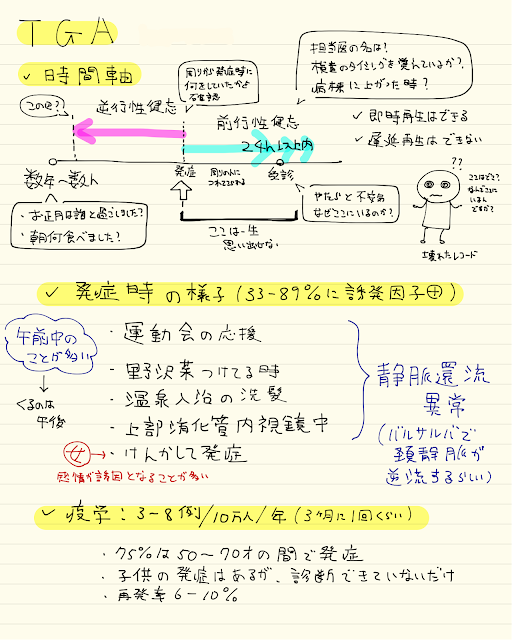 TGA
✓ 時間軸
周りが発症時に
何をしていたかを
確認
担当医の名は?
検査のタイミングを覚えているか?
病棟に上がった時?
この日?
逆行性健忘
前行性健忘
24h以上内
✓ 即時再生はできる
✓ 遅延再生はできない
数年〜数h
発症
周りの人に
つれてこられる
受診
・お正月は誰と過ごしました?
・朝何食べました?
ここは一生
思い出せない
やたらと不安な
なぜここにいるのか?
??
ここはどこ?
なんでここに
いるん
ですか?
壊れたレコード
✓ 発症時の様子(33-89%に誘発因子⊕)
午前中の
ことが多い
くるのは
午後
・運動会の応援
・野沢菜つけてる時
・温泉入浴の洗髪
・上部消化管内視鏡中
女→・けんかして発症
感情が誘因となることが多い
静脈還流
異常
(バルサルバで
頚静脈が
逆流するらしい)
✓ 疫学:3-8例/10万人/年(3ヶ月に1回くらい)
・75%は50〜70才の間で発症
・子供の発症はあるが、診断できていないだけ
・再発率6-10%